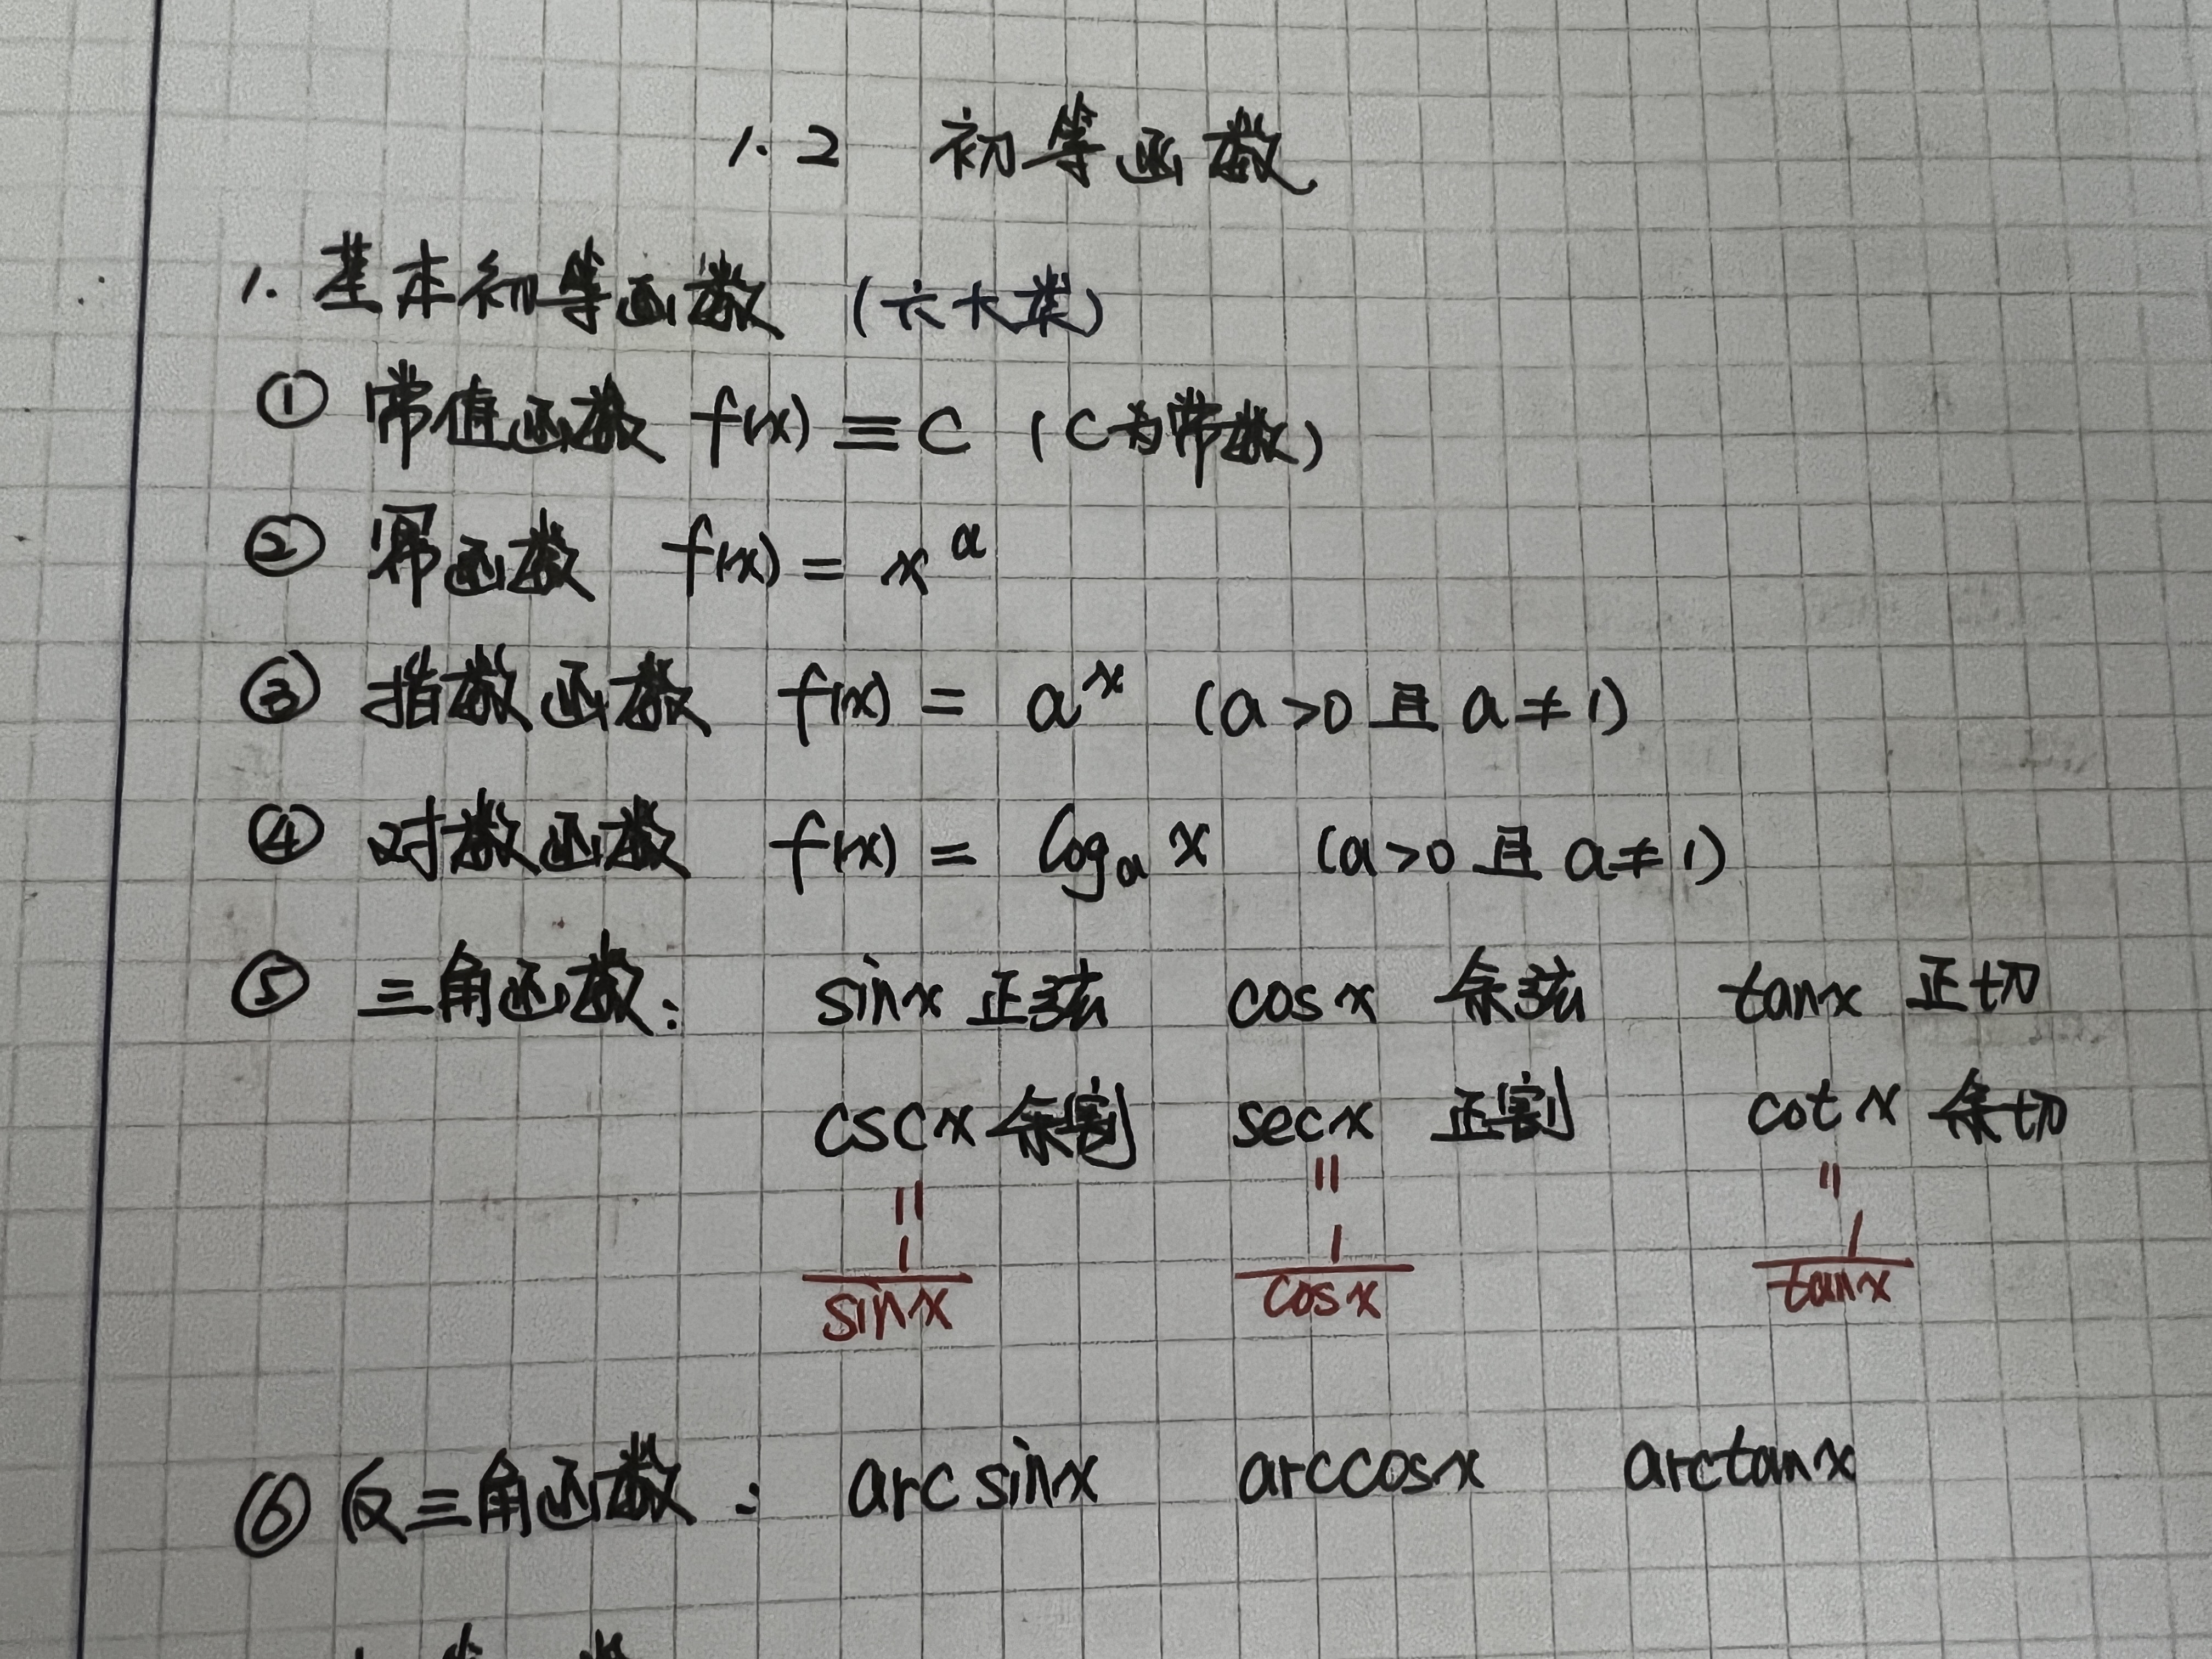 1.2 初等函数
1. 基本初等函数 (六大类)
① 常值函数 f(x) ≡ C (C为常数)
② 幂函数 f(x) = x^α
③ 指数函数 f(x) = a^x (a>0 且 a≠1)
④ 对数函数 f(x) = log_a x (a>0 且 a≠1)
⑤ 三角函数: sinx 正弦 cosx 余弦 tanx 正切
cscx 余割 secx 正割 cotx 余切
= = =
1/sinx 1/cosx 1/tanx
⑥ 反三角函数: arcsinx arccosx arctanx